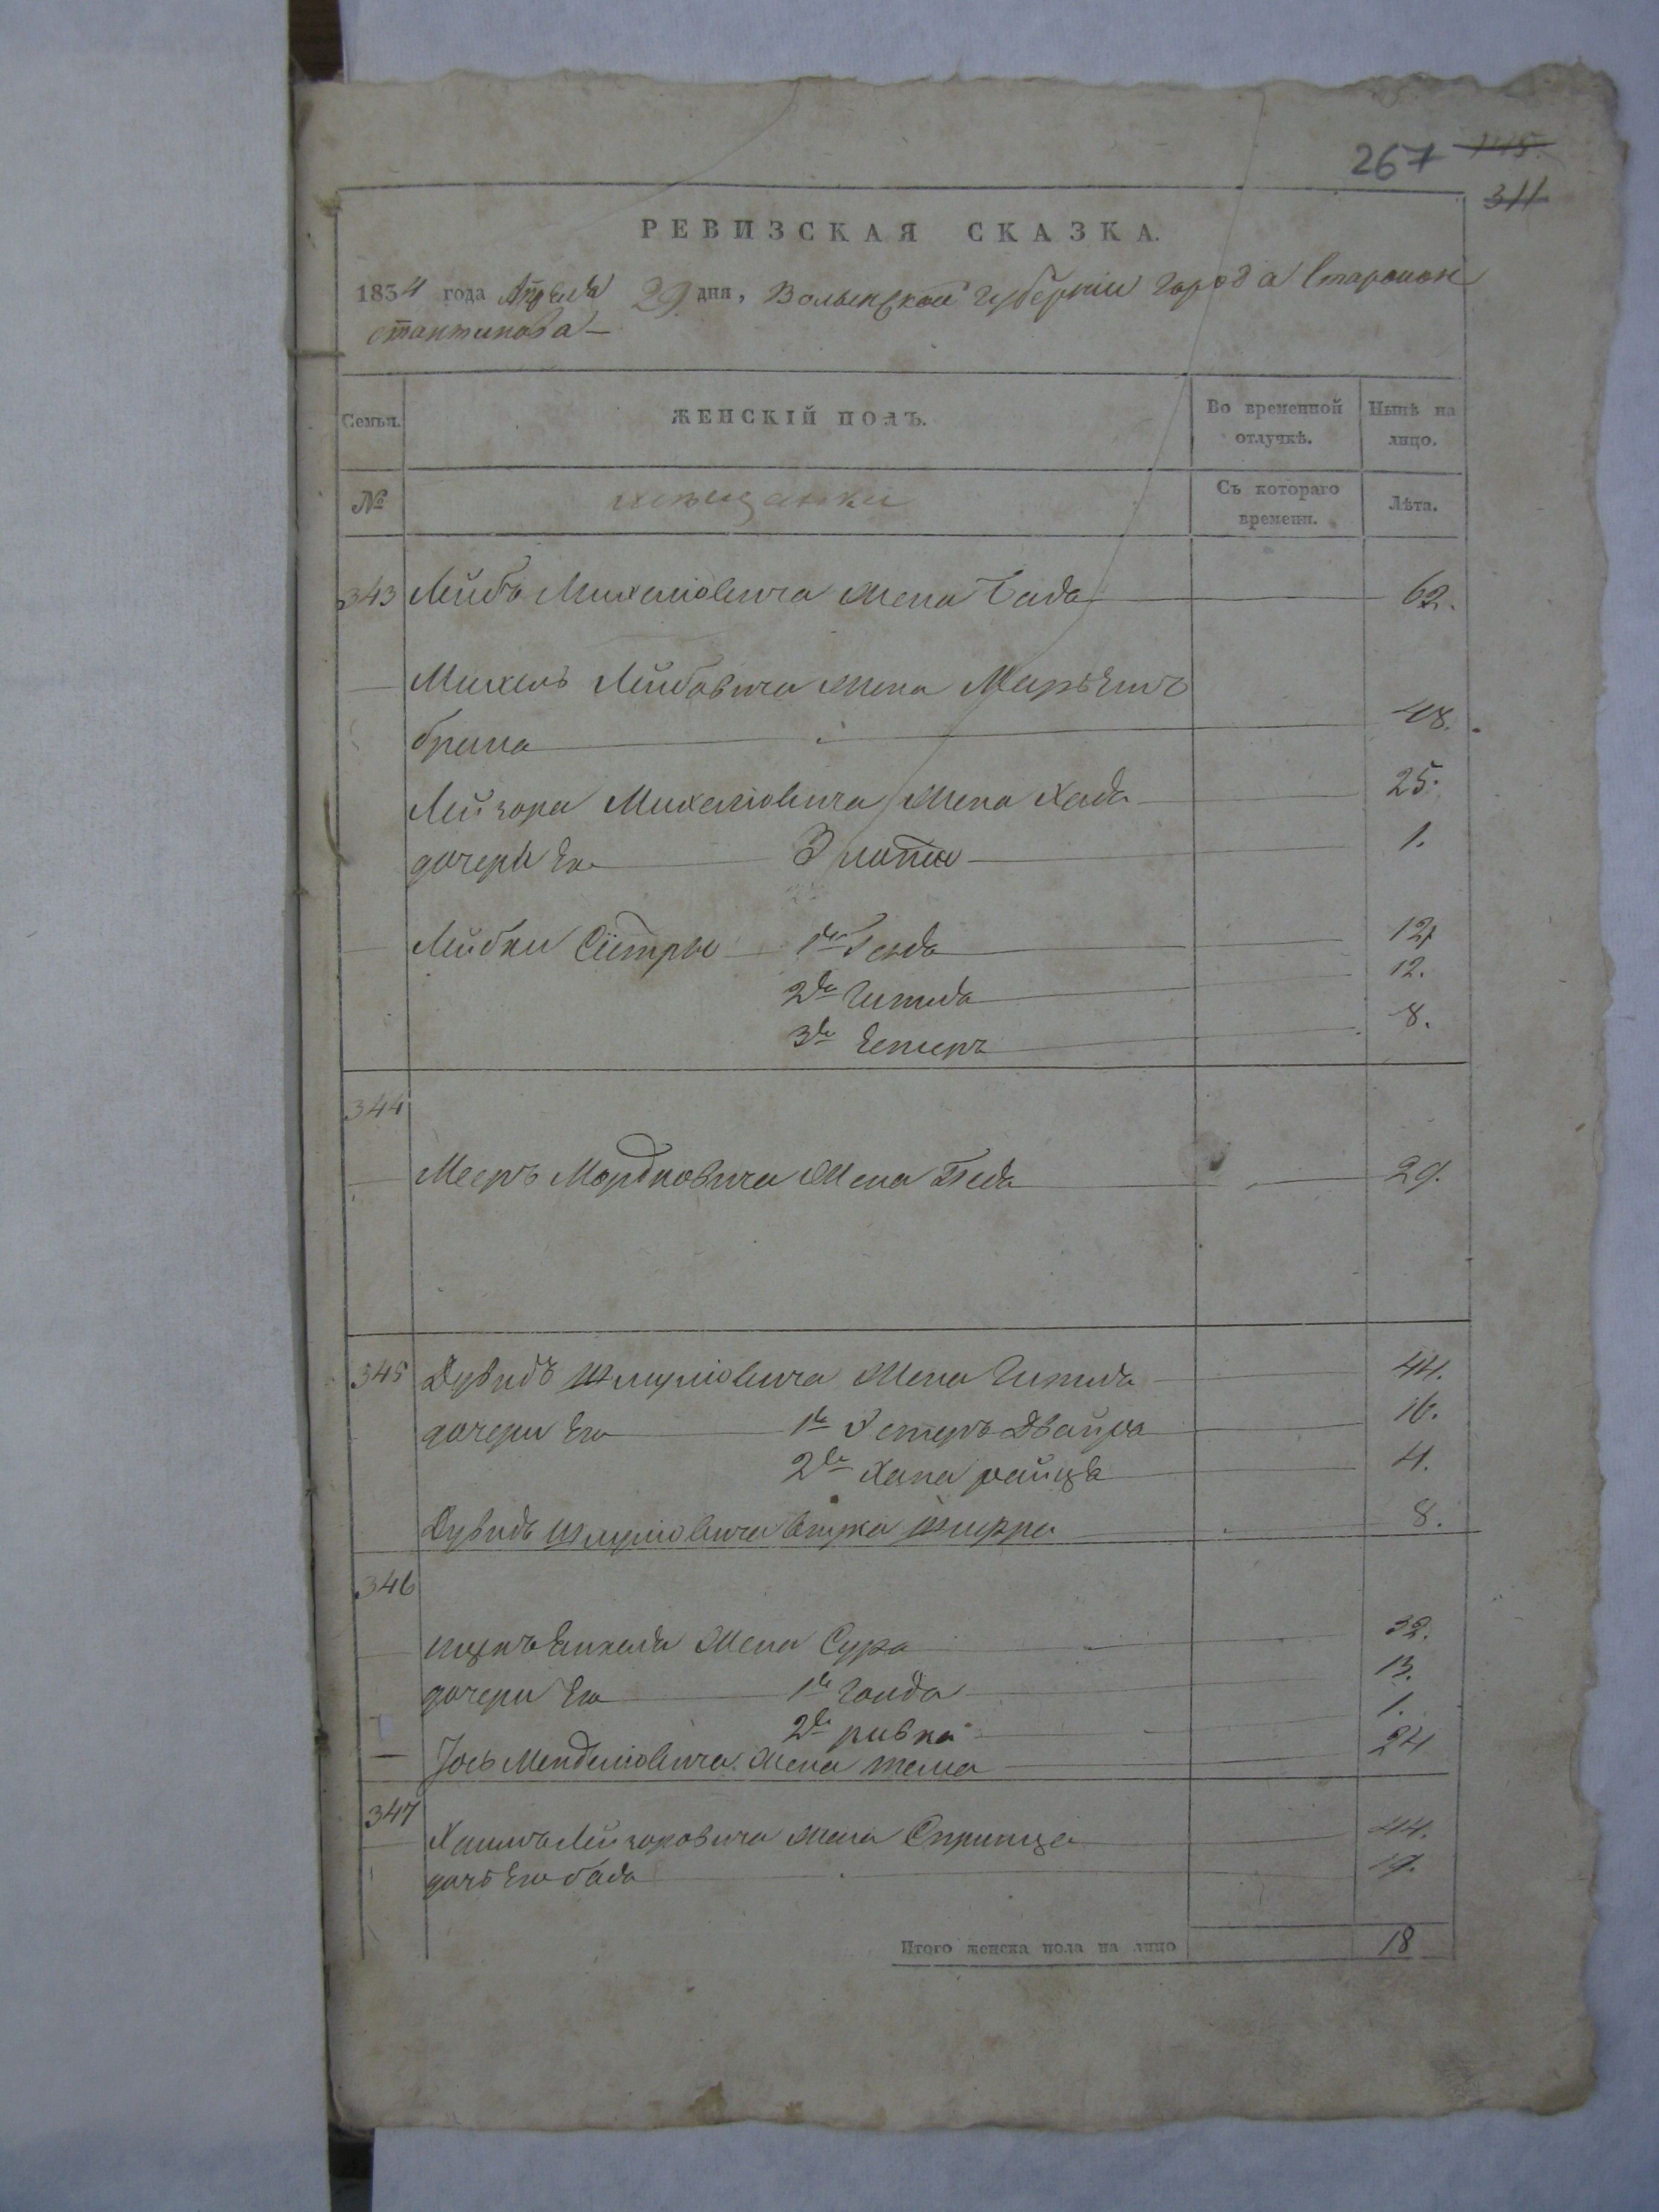 267 145.
311
РЕВИЗСКАЯ СКАЗКА.
1834 года Апреля 29 дня, Волынской Губерніи города Старокон
стантинова —
Семьи. ЖЕНСКІЙ ПОЛЪ. Во временной отлучкѣ. Нынѣ на лицо.
№ мещанки Съ котораго времени. Лѣта.
343 Лейбъ Михелiовича Жена 62.
Михель Лейбовича Жена
брана 48.
Лейзора Михелiовича Жена Хада 25.
дочери Его Злата 1.
Лейбки Сестры 1я 12
2я Гитлa 12.
3я Естеръ 8.
344
Мееръ Мордковича Жена 29.
345 Дувидъ Шмулiовича Жена Гитля 44.
дочери Его 1я Естеръ Двойра 16.
2я Хана райца 4.
Дувидъ Шмулiовича внука Шифра 8.
346
Ицкъ Жена Сура 32.
дочери Его 1я Голда 13.
2я ривка 1.
Іось Менделiовича Жена тема 24
347
Хаимъ Лейзоровича Жена Спринца 44.
дочь Его 19.
Итого женска пола на лицо 18